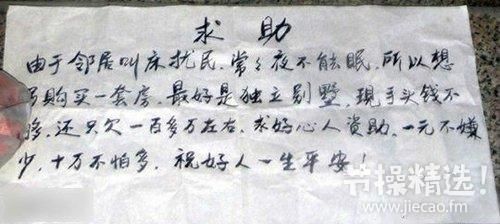 求助
由于邻居叫床扰民,常々夜不能眠,所以想
另购买一套房,最好是独立别墅,现手头钱不
够,还只欠一百多万左右,求好心人资助,一元不嫌
少,十万不怕多,祝好人一生平安!
节操精选!
www.jiecao.fm